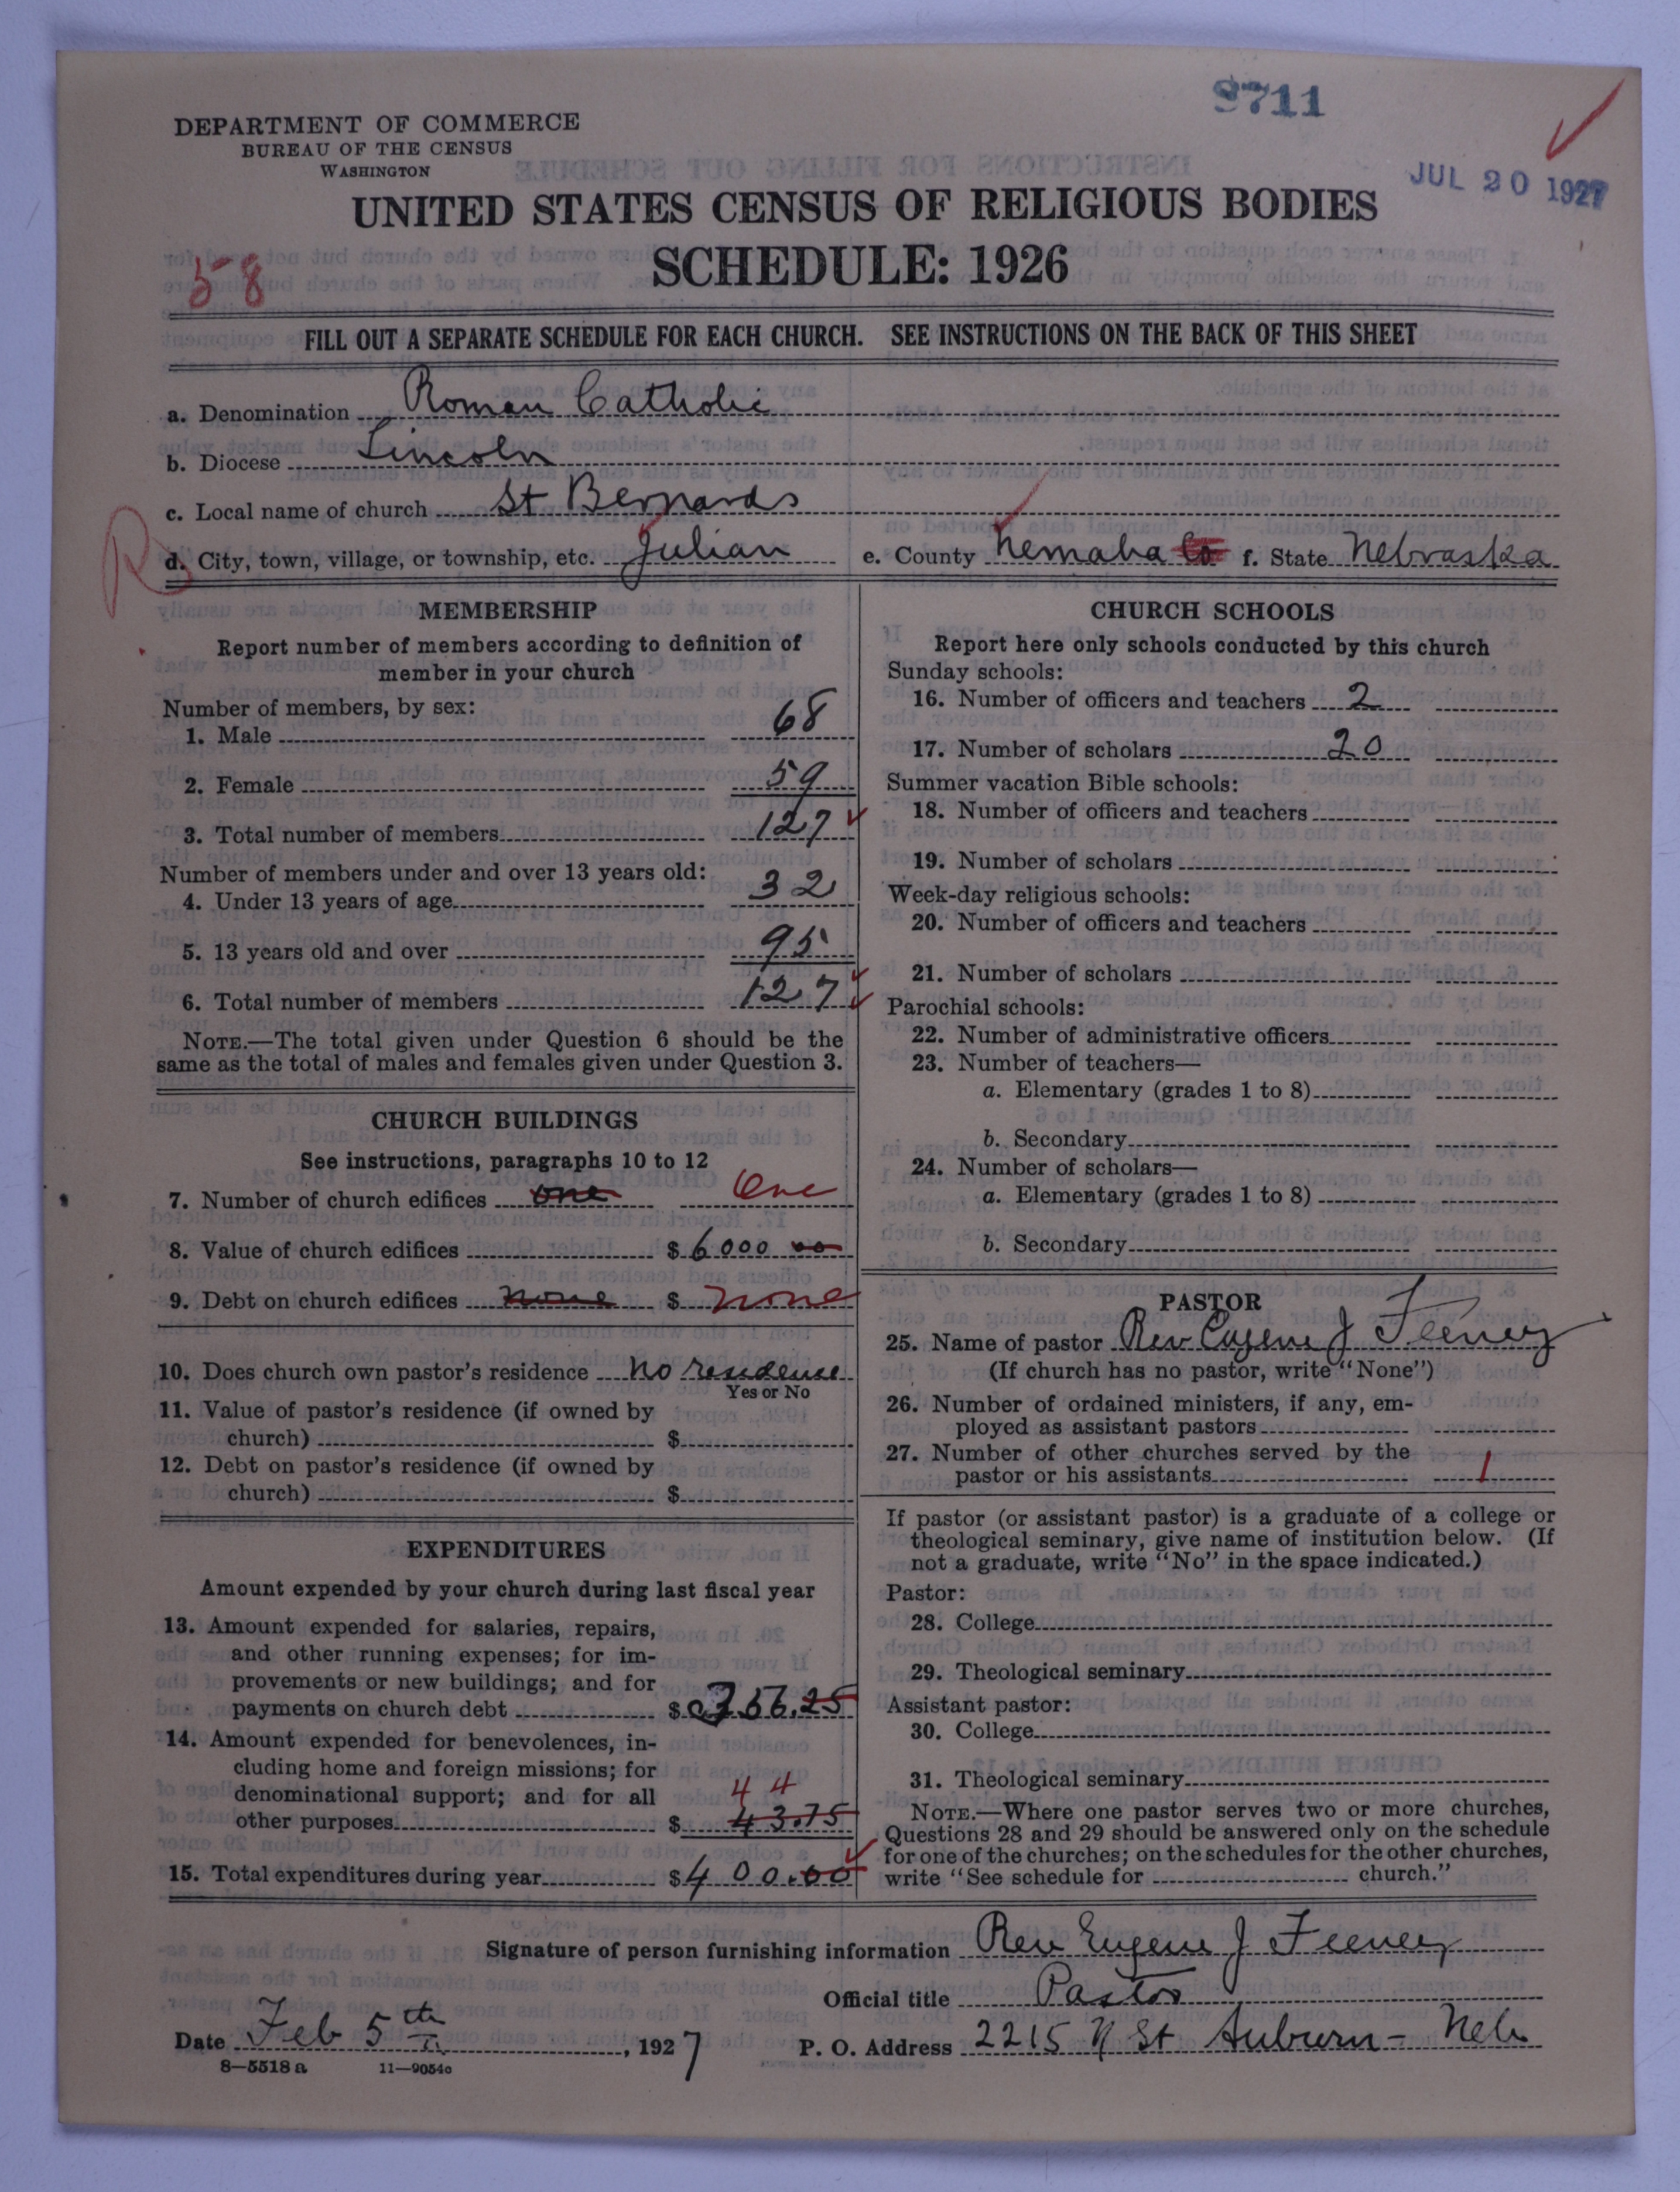 8711
DEPARTMENT OF COMMERCE
BUREAU OF THE CENSUS
WASHINGTON
JUL 20 1927
UNITED STATES CENSUS OF RELIGIOUS BODIES
SCHEDULE: 1926
58
FILL OUT A SEPARATE SCHEDULE FOR EACH CHURCH. SEE INSTRUCTIONS ON THE BACK OF THIS SHEET
a. Denomination Roman Catholic
b. Diocese Lincoln
c. Local name of church St Bernards
R
d. City, town, village, or township, etc. Julian e. County Nemaha Co f. State Nebraska
MEMBERSHIP
Report number of members according to definition of
member in your church
Number of members, by sex:
1. Male 68
2. Female 59
3. Total number of members 127
Number of members under and over 13 years old:
4. Under 13 years of age 32
5. 13 years old and over 95
6. Total number of members 127
NOTE.—The total given under Question 6 should be the
same as the total of males and females given under Question 3.
CHURCH BUILDINGS
See instructions, paragraphs 10 to 12
7. Number of church edifices one One
8. Value of church edifices $ 6000 00
9. Debt on church edifices none $ none
10. Does church own pastor's residence no residence
Yes or No
11. Value of pastor's residence (if owned by
church) $
12. Debt on pastor's residence (if owned by
church) $
EXPENDITURES
Amount expended by your church during last fiscal year
13. Amount expended for salaries, repairs,
and other running expenses; for im-
provements or new buildings; and for
payments on church debt $ 356.25
14. Amount expended for benevolences, in-
cluding home and foreign missions; for
denominational support; and for all 44
other purposes $ 43.75
15. Total expenditures during year $ 400.00
CHURCH SCHOOLS
Report here only schools conducted by this church
Sunday schools:
16. Number of officers and teachers 2
17. Number of scholars 20
Summer vacation Bible schools:
18. Number of officers and teachers
19. Number of scholars
Week-day religious schools:
20. Number of officers and teachers
21. Number of scholars
Parochial schools:
22. Number of administrative officers
23. Number of teachers—
a. Elementary (grades 1 to 8)
b. Secondary
24. Number of scholars—
a. Elementary (grades 1 to 8)
b. Secondary
PASTOR
25. Name of pastor Rev Eugene J Feeney
(If church has no pastor, write "None")
26. Number of ordained ministers, if any, em-
ployed as assistant pastors
27. Number of other churches served by the
pastor or his assistants 1
If pastor (or assistant pastor) is a graduate of a college or
theological seminary, give name of institution below. (If
not a graduate, write "No" in the space indicated.)
Pastor:
28. College
29. Theological seminary
Assistant pastor:
30. College
31. Theological seminary
NOTE.—Where one pastor serves two or more churches,
Questions 28 and 29 should be answered only on the schedule
for one of the churches; on the schedules for the other churches,
write "See schedule for church."
Signature of person furnishing information Rev Eugene J Feeney
Official title Pastor
Date Feb 5th, 1927 P. O. Address 2215 N St Auburn - Neb
8—5518 a 11—9054c